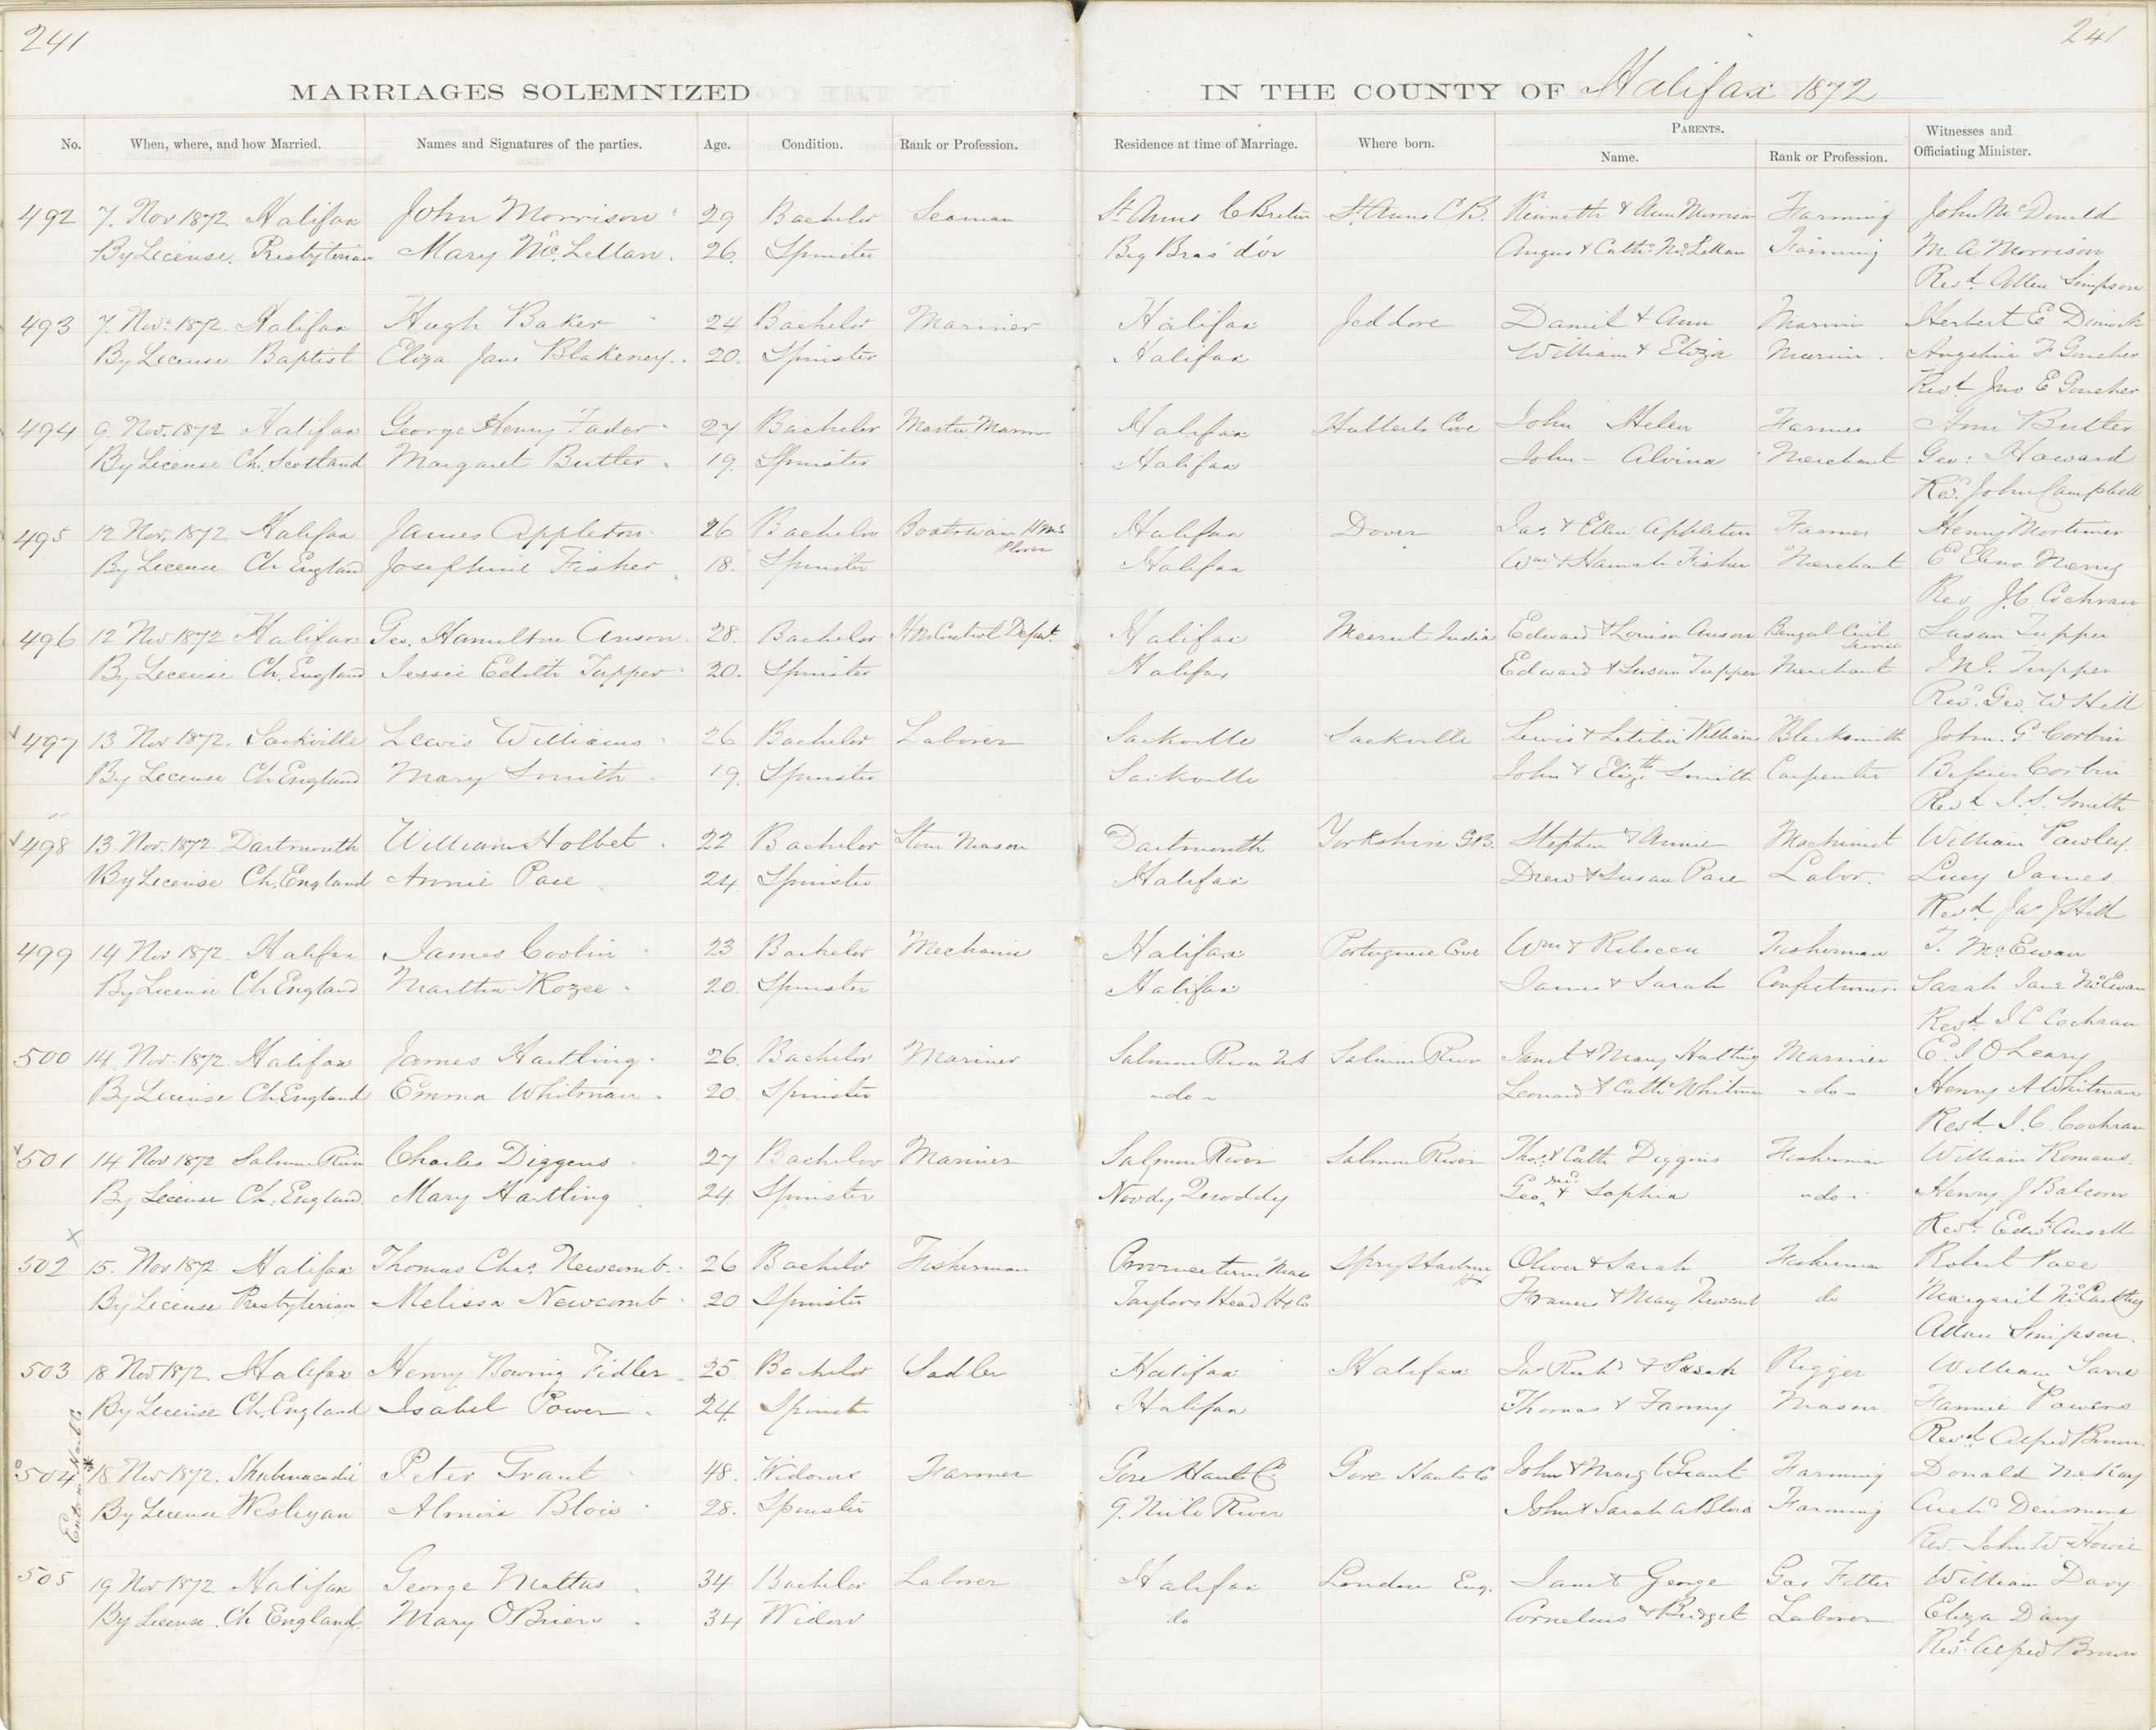 241
241
MARRIAGES SOLEMNIZED IN THE COUNTY OF Halifax 1872
No. When, where, and how Married. Names and Signatures of the parties. Age. Condition. Rank or Profession. Residence at time of Marriage. Where born. PARENTS. Name. Rank or Profession. Witnesses and Officiating Minister.
492 7. Nov 1872. Halifax John Morrison 29 Bachelor Seaman St Anns C Breton St Anns C.B. Kenneth & Ann Morrison Farming John McDonald
By License. Presbyterian Mary McLellan. 26. Spinster Big Bras d'or Angus & Cath. McLellan Farming M. A. Morrison
Revd. Allen Simpson
493 7. Nov. 1872. Halifax Hugh Baker 24 Bachelor Mariner Halifax Jeddore Daniel & Ann Marin Herbert E
By License Baptist Eliza Jane Blakeney. 20. Spinster Halifax William & Eliza Marin. Angelina F Goucher
Revd. Jno E Goucher
494 9. Nov. 1872 Halifax George Henry Fader 27 Bachelor Master Marin Halifax Hubberts Cove John Helen Farmer Ann Butler
By License Ch. Scotland Margaret Butler. 19. Spinster Halifax John - Alvina Merchant Geo: Howard
Rev. John Campbell
495 12 Nov. 1872 Halifax James Appleton 26 Bachelor Boatswain HMS Plover Halifax Dover Jas. & Ellen Appleton Farmer Henry Mortimer
By License. Ch England Josephine Fisher 18. Spinster Halifax Wm & Hannah Fisher Merchant E
Rev J.C. Cochran
496 12 Nov 1872 Halifax Geo. Hamilton Anson 28. Bachelor HM Control Depart. Halifax Meerut India Edward & Louisa Anson Bengal Civil Service Susan Tupper
By License Ch. England Jessie Edith Tupper 20. Spinster Halifax Edward & Susan Tupper Merchant Tupper
Rev. Geo. W Hill
497 13 Nov 1872. Sackville Lewis Williams 26 Bachelor Laborer Sackville Sackville Lewis & Letitia William Blacksmith John. G. Corbin
By License Ch England Mary Smith 19. Spinster Sackville John & Elizth Smith Carpenter Bessie Corbin
Revd. Smith
498 13. Nov. 1872. Dartmouth William Holbet. 22 Bachelor Stone Mason Dartmouth Yorkshire GB. Stephen & Annie Machinist William Pawley.
By License Ch. England Annie Pace 24. Spinster Halifax Drew & Susan Pace Labor. Lucy James
Revd Jas J Hill
499 14 Nov 1872. Halifax James 23 Bachelor Mechanic Halifax Portuguese Cove Wm & Rebecca Fisherman T. McEwan
By License Ch England Martha Kozee 20. Spinster Halifax James & Sarah Confectioner Sarah Jane McEwan
Revd. J C Cochran
500 14. Nov. 1872. Halifax James Hartling. 26. Bachelor Mariner Salmon River NS Salmon River & Mary Hartling Mariner E. J O'Leary
By License Ch. England Emma Whitman. 20. Spinster -do- Leonard & Cath. Whitman -do- Henry A Whitman
Revd. J. C. Cochran
501 14 Nov 1872 Salmon River Charles Diggens 27 Bachelor Mariner Salmon River Salmon River Thos. & Cath Diggins Fisherman William Romans.
By License Ch. England. Mary Hartling 24. Spinster Necdy Quoddy Geo. & Sophia -do- Henry J Balcom
Revd. Edw.
502 15. Nov 1872. Halifax Thomas Chas. Newcomb. 26 Bachelor Fisherman Provincetown Mass Spry Harbour Oliver & Sarah Fisherman Robert Pace
By License Presbyterian Melissa Newcomb 20 Spinster Taylors Head Hx Co Francis & Mary Newcomb do Margaret McCarthy
Allan Simpson.
503 18 Nov 1872. Halifax Henry Fidler 25. Bachelor Sadler Halifax Halifax & Sarah Rigger William
By License Ch. England Isabel Power 24. Spinster Halifax Thomas & Fanny Mason. Fannie Powers
Revd. Alfred Brown.
504 * 18 Nov 1872. Shubenacadie Peter Grant 48. Widower Farmer Gore Hants Co. Gore Hants Co John & Margt Grant Farming Donald McKay
By License Wesleyan Almira Blois 28. Spinster 9. Mile River John & Sarah A Blois Farming Archd Densmore
Rev. John W Howie
505 19 Nov 1872. Halifax George Mattus 34 Bachelor Laborer Halifax London Eng. George Gas Fitter William Davy
By License. Ch England. Mary O'Brien 34 Widow do Cornelius & Bridget Laborer Eliza Davy
Revd. Alfred Brown